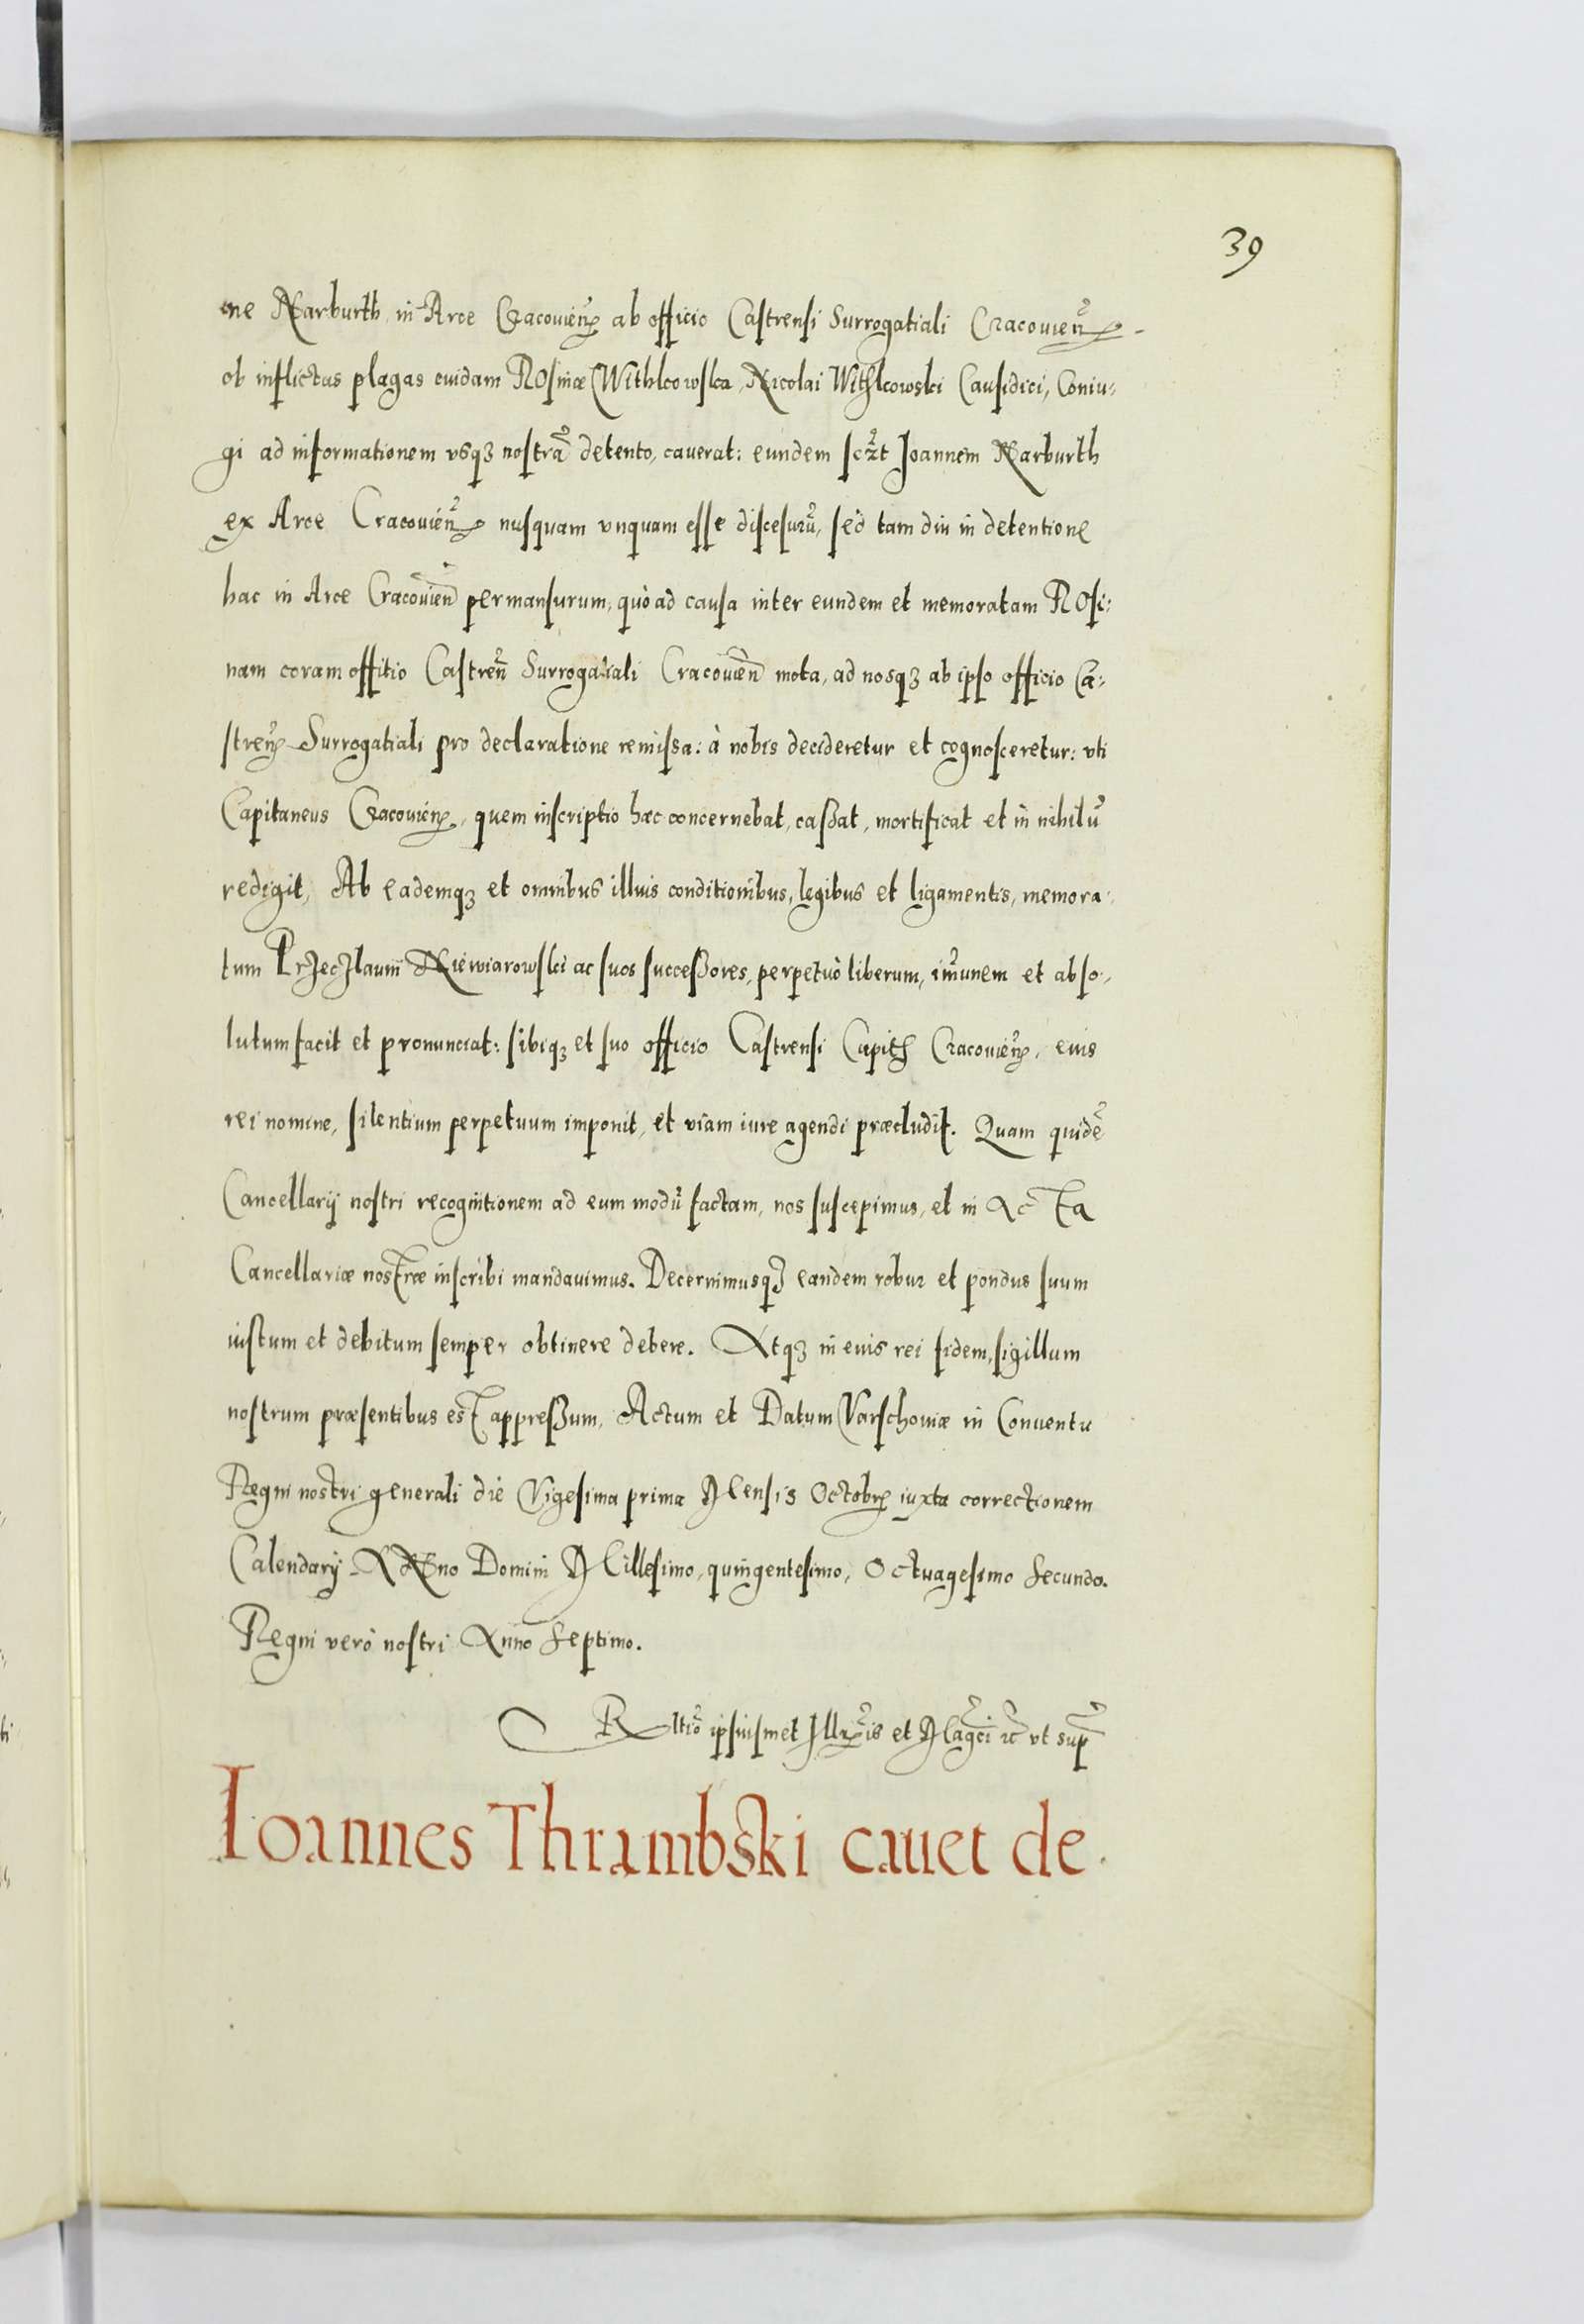 39
ne Narburth in Arce Cracovien̄ ab officio Castrensi Surrogatiali Cracovien̄
ob inflictas plagas cuidam Rosinæ Withkowska, Nicolai Withkowski Causidici, Coniu:
gi ad informationem vsqȝ nostrā detento, cauerat: eundem scz̄t Joannem Narburth
ex Arce Cracouien̄ nusquam vnquam esse discesurū, sed tam diu in detentione
hac in Arce Cracouien̄ permansurum, quò ad causa inter eundem et memoratam Rosi:
nam coram offitio Castren̄ Surrogatiali Cracouien̄ mota, ad nosqȝ ab ipso officio Ca:
stren̄ Surrogatiali pro declaratione remissa: à nobis decideretur et cognosceretur: vti
Capitaneus Cracouien̄, quem inscriptio hæc concernebat, cassat, mortificat et in nihilū
redigit, Ab eademqȝ et omnibus illius conditionibus, legibus et ligamentis, memora:
tum Przeczlaum Niewiarowski ac suos successores, perpetuò liberum, im̄unem et abso:
lutum facit et pronunciat: sibiqȝ et suo officio Castrensi Capitꝭ Cracouien̄, eius
rei nomine, silentium perpetuum imponit, et viam iure agendi præcludit. Quam quidē
Cancellarij nostri recognitionem ad eum modū factam, nos suscepimus, et in Acta
Cancellariæ nostræ inscribi mandauimus. Decernimusqȝ eandem robur et pondus suum
iustum et debitum semper obtinere debere. Atqȝ in euis rei fidem, sigillum
nostrum præsentibus est appressum, Actum et Datum Varschouiæ in Conuentu
Regni nostri generali die Vigesima prima Mensis Octobrꝭ iuxta correctionem
Calendarij Anno Domini Millesimo, quingentesimo, Octuagesimo Secundo.
Regni verò nostri Anno Septimo.
Rltiō ipsiusmet Illrꝭis et Magci ꝛc̄ vt sup̄
Ioannes Thrambski cauet de.